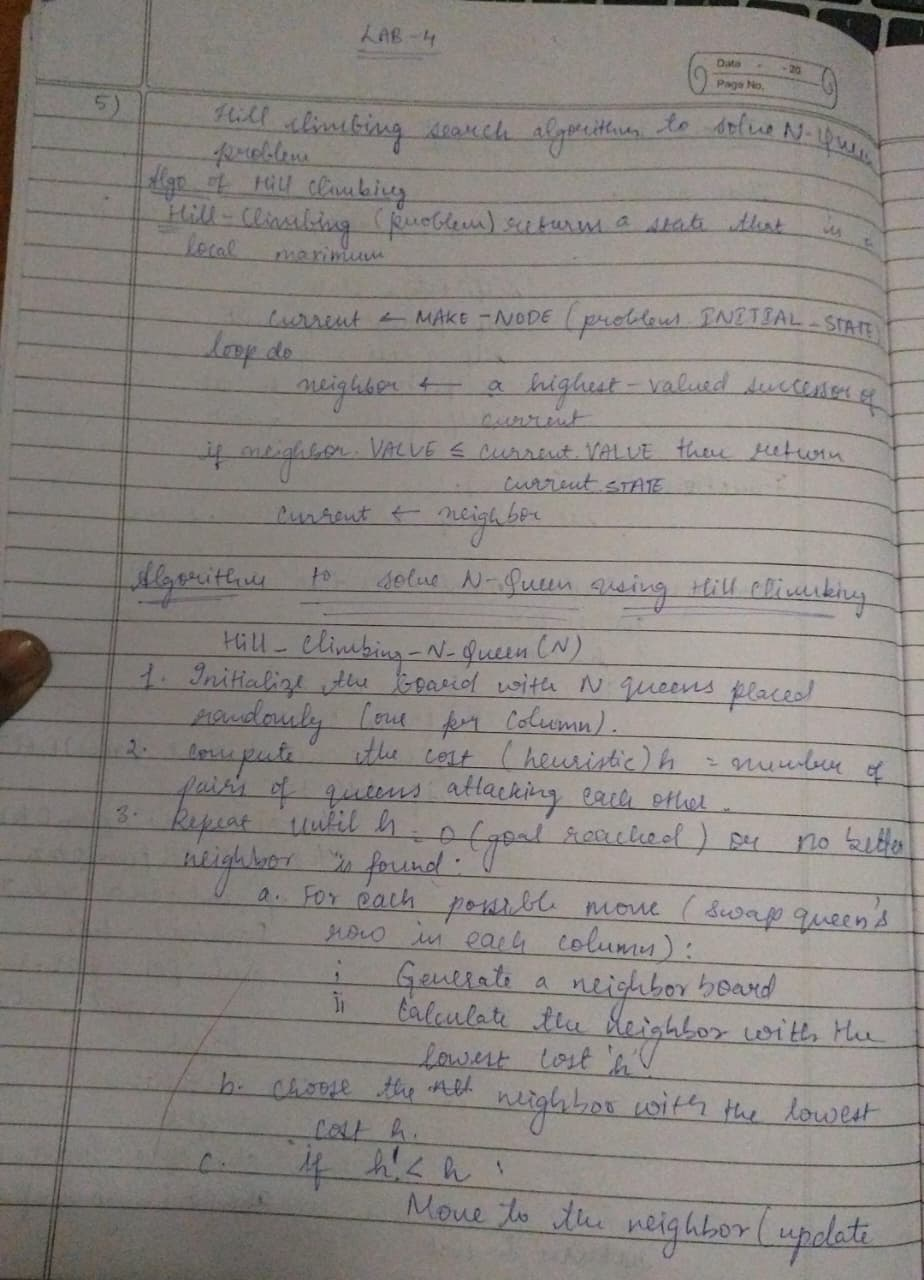 LAB-4
Date - - 20
Page No.
5) Hill climbing search algorithm to solve N-Queen
problem
Algo of Hill climbing
Hill-Climbing (problem) returns a state that is a
local maximum
current ← MAKE-NODE (problem. INITIAL-STATE)
loop do
neighbor ← a highest-valued successor of
current
if neighbor. VALUE ≤ current. VALUE then return
current. STATE
current ← neighbor
Algorithm to solve N-Queen using Hill Climbing
Hill-Climbing-N-Queen (N)
1. Initialize the board with N queens placed
randomly (one per column).
2. compute the cost (heuristic) h = number of
pairs of queens attacking each other.
3. Repeat until h = 0 (goal reached) or no better
neighbor is found:
a. For each possible move (swap queen's
row in each column):
i Generate a neighbor board
ii Calculate the neighbor with the
lowest cost 'h'.
b. choose the neighbor with the lowest
cost h.
c. if h' < h :
Move to the neighbor (update